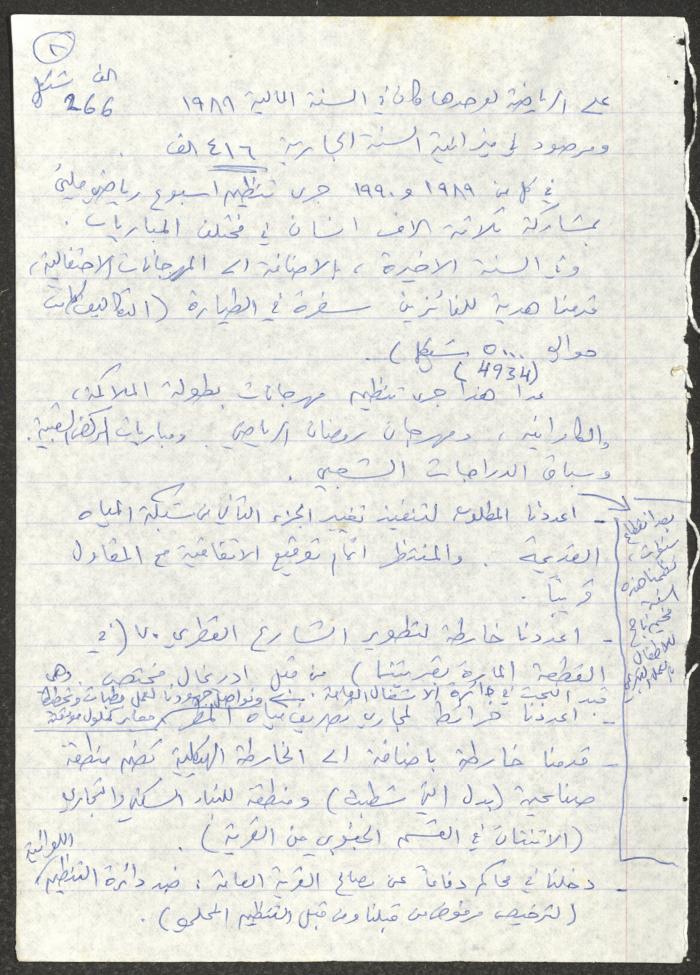 ٨
على الرياضة لوحدها كان في السنة المالية ١٩٨٩ 266 الف شيكل
ومرصود في ميزانية السنة الجارية ٤١٦ الف .
في كل من ١٩٨٩ و ١٩٩٠ جرى تنظيم اسبوع رياضي محلي
بمشاركة ثلاثة الاف انسان في مختلف المباريات .
وفي السنة الاخيرة ، بالاضافة الى المهرجانات الاحتفالية ،
قدمنا هدية للفائزين سفرة في الطيارة (التكاليف كانت
حوالي ٥٠٠٠ شيكل) .
(4934)
عدا هذا جرى تنظيم مهرجانات بطولة الملاكمة ،
والكاراتيه ، ومهرجان رمضان الرياضي ومباريات الركض الشعبية .
وسباق الدراجات الشعبي .
- اعددنا المطلوب لتنفيذ تغيير الجزء الثاني من شبكة المياه
القديمة . والمنتظر اتمام توقيع الاتفاقية مع المقاول
قريبًا .
- اعددنا خارطة لتطوير الشارع القطري ٧٠ (في
القطعة المارة بقريتنا) من قبل مختص . وهي
قيد البحث في دائرة الاشغال العامة . ونواصل جهودنا لعمل
- اعددنا خرائط لمجاري تصريف مياه المطر
- قدمنا خارطة باضافة الى الخارطة الهيكلية تضم منطقة
صناعية (بدل التي شطبت) ومنطقة للبناء السكني والتجاري
(الاثنتان في القسم الجنوبي من القرية) .
- دخلنا في محاكم دفاعًا عن مصالح القرية العامة : ضد دائرة التنظيم اللوائية
(لترخيص مرفوض من قبلنا ومن قبل التنظيم المحلي) .
بعد انقطاع
سنوات ،
نظمنا هذه
السنة
مخيم ناجح
للاطفال